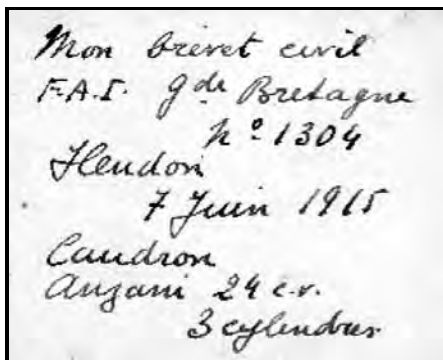 Mon brevet civil
F.A.I. Gde Bretagne
No 1304
Hendon
7 Juin 1915
Caudron
Anzani 24 c.v.
3 cylindres